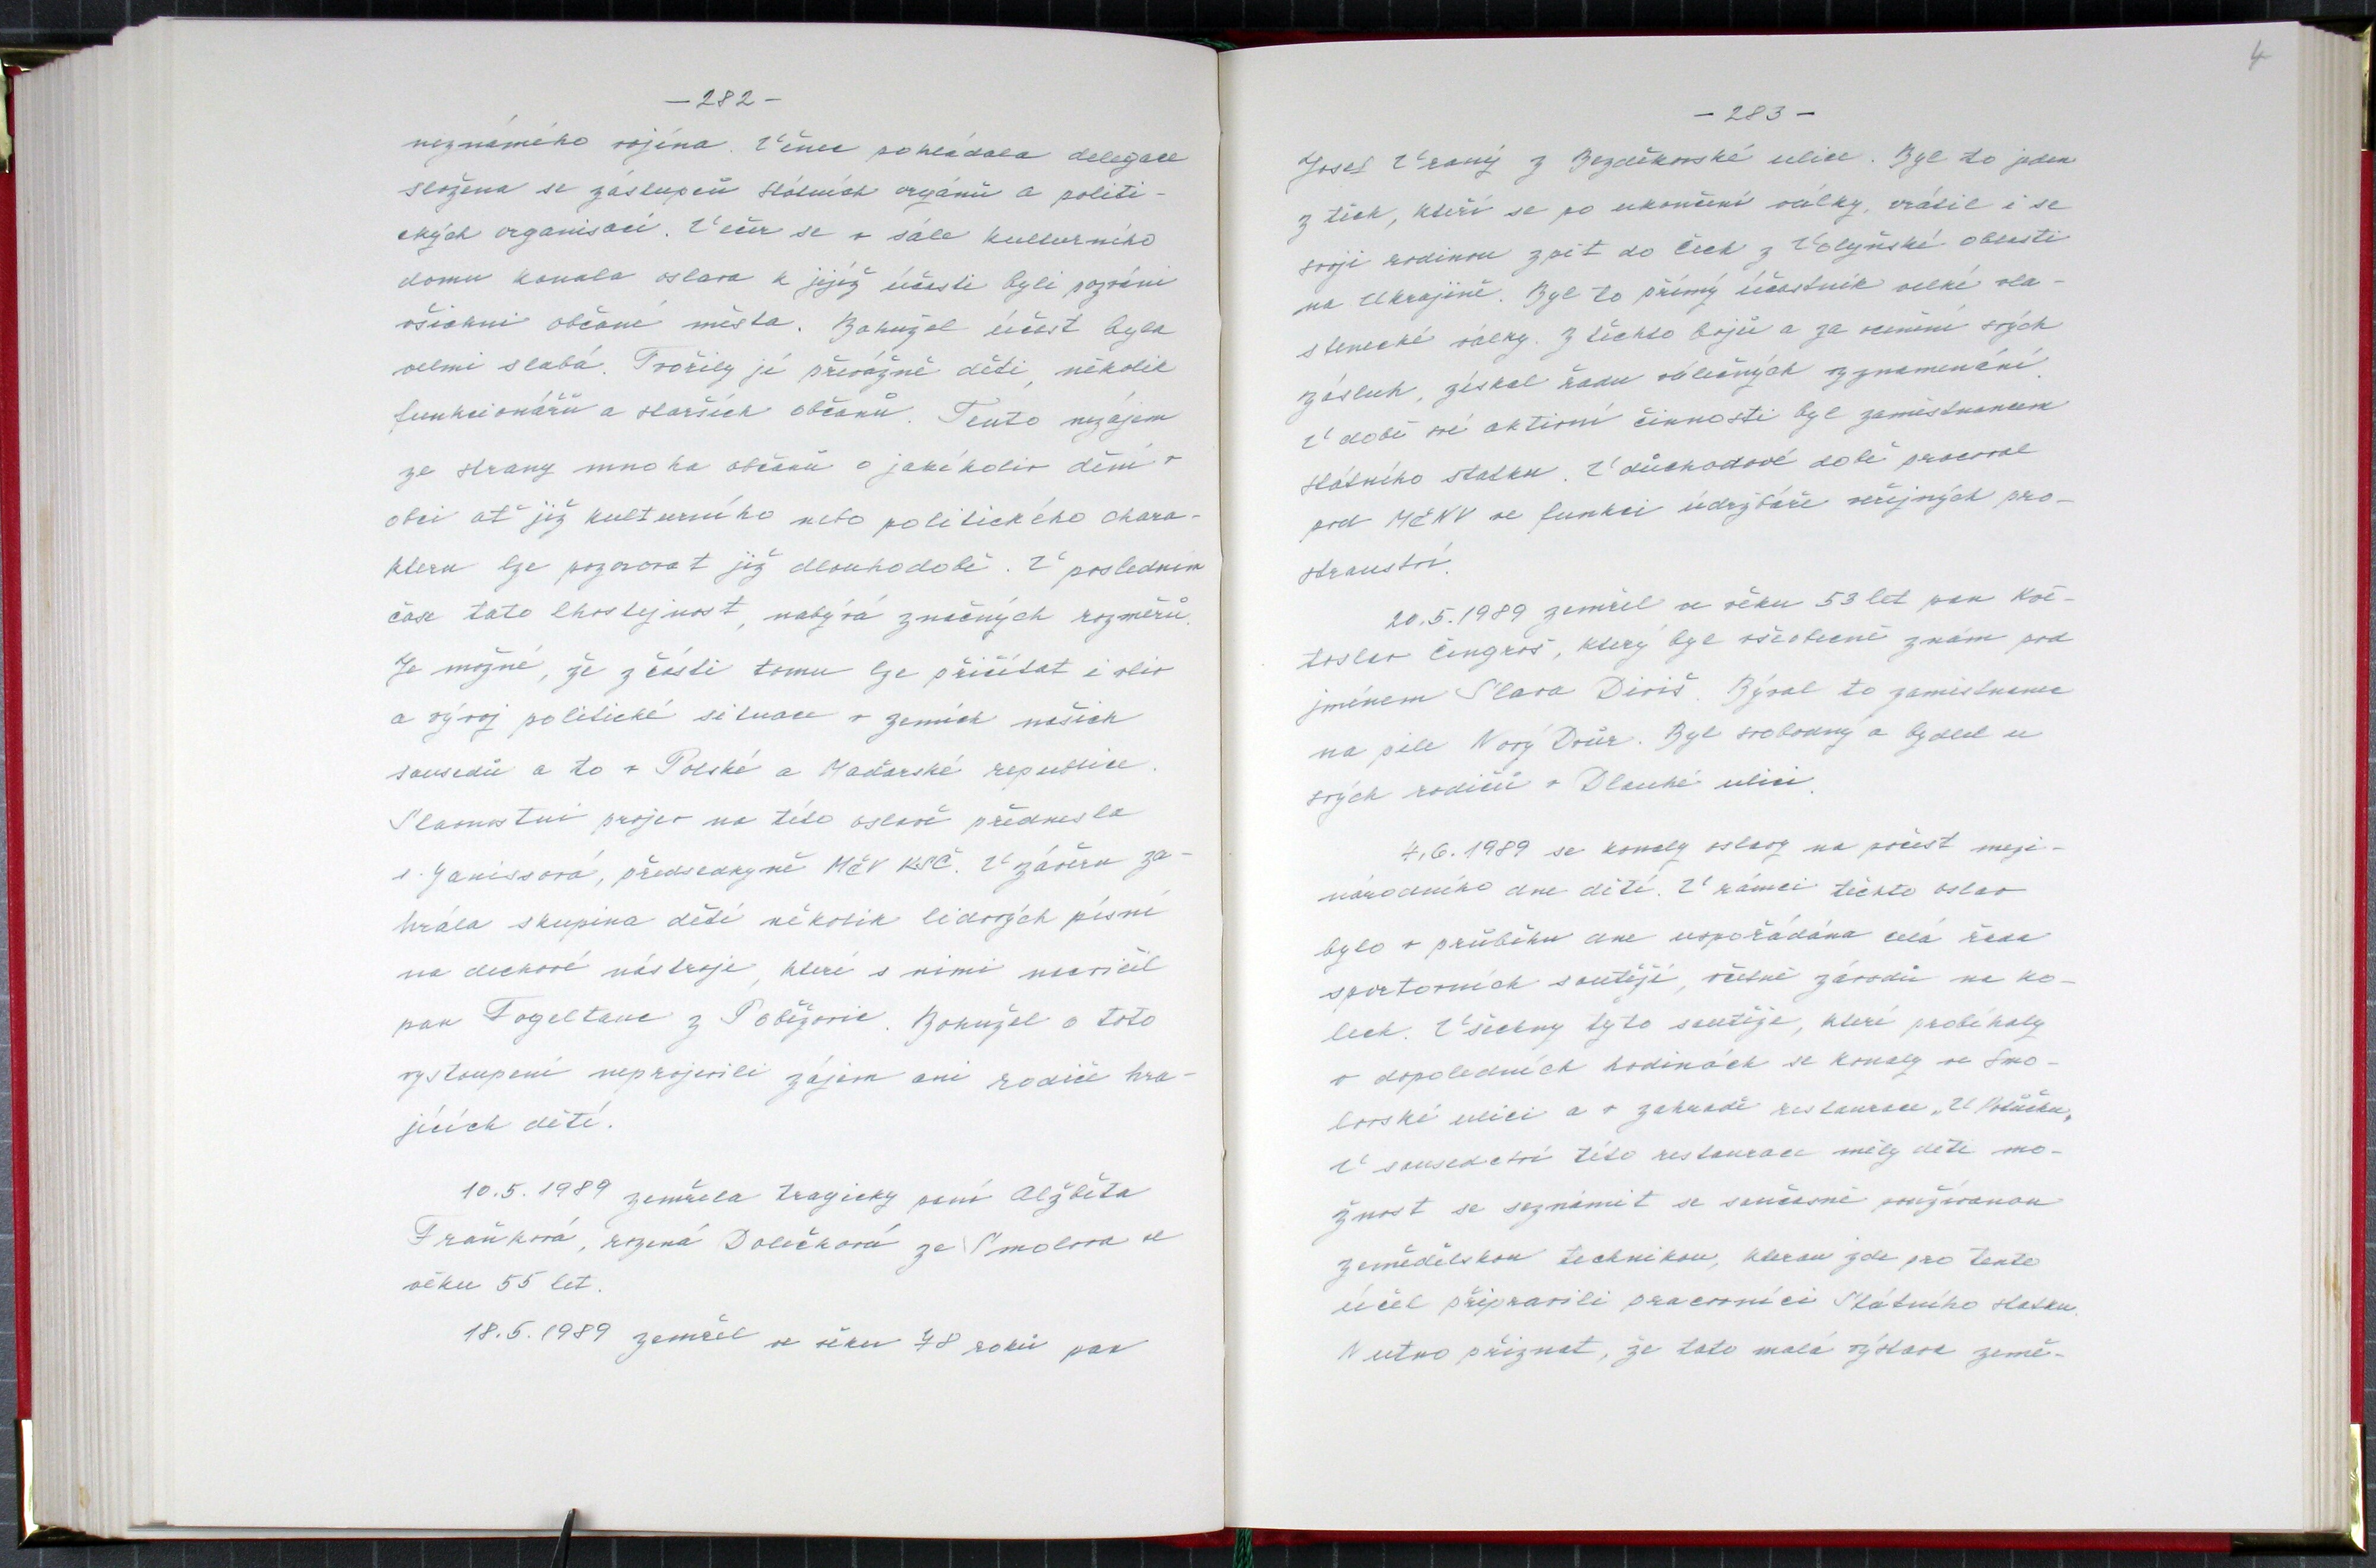 - 282 -
neznámého vojína. Věnec pokládala delegace
složena se zástupců státních orgánů a politi-
ckých organisací. Večer se v sále kulturního
domu konala oslava k jejíž účasti byli pozváni
všichni občané města. Bohužel účast byla
velmi slabá. Tvořily jí převážně děti, několik
funkcionářů a starších občanů. Tento nezájem
ze strany mnoha občanů o jakékoliv dění v
obci ať již kulturního nebo politického chara-
kteru lze pozorovat již dlouhodobě. V posledním
čase tato lhostejnost, nabývá značných rozměrů.
Je možné, že z části tomu lze přičítat i vliv
a vývoj politické situace v zemích našich
sousedů a to v Polské a Maďarské republice.
Slavnostní projev na této oslavě přednesla
s. Janissová, předsedkyně MěV KSČ. V závěru za-
hrála skupina dětí několik lidových písní
na dechové nástroje, které s nimi nacvičil
pan Fogeltanc z Poběžovic. Bohužel o toto
vystoupení neprojevili zájem ani rodiče hra-
jících dětí.
10.5.1989 zemřela tragicky paní Alžběta
Fraňková, rozená Dolečková ze Smolova ve
věku 55 let.
18.5.1989 zemřel ve věku 78 roků pan
4
- 283 -
Josef Vraný z Bezděkovské ulice. Byl to jeden
z těch, kteří se po ukončení války, vrátil i se
svojí rodinou zpět do Čech z Volyňské oblasti
na Ukrajině. Byl to přímý účastník velké vla-
stenecké války. Z těchto bojů a za ocenění svých
zásluh, získal řadu válečných vyznamenání.
V době své aktivní činnosti byl zaměstnancem
státního statku. V důchodové době pracoval
pod MěNV ve funkci údržbáře veřejných pro-
stranství.
20.5.1989 zemřel ve věku 53 let pan Kvě-
toslav Čengroš, který byl všeobecně znám pod
jménem Slava Diviš. Býval to zaměstnanec
na pile Nový Dvůr. Byl svobodný a bydlel u
svých rodičů v Dlouhé ulici.
4.6.1989 se konaly oslavy na počest mezi-
národního dne dětí. V rámci těchto oslav
bylo v průběhu dne uspořádána celá řada
sportovních soutěží, včetně závodů na ko-
lech. Všechny tyto soutěže, které probíhaly
v dopoledních hodinách se konaly ve Smo-
lovské ulici a v zahradě restaurace „U
V sousedství této restaurace měly děti mo-
žnost se seznámit se současně používanou
zemědělskou technikou, kterou zde pro tento
účel připravili pracovníci Státního statku.
Nutno přiznat, že tato malá výstava země-